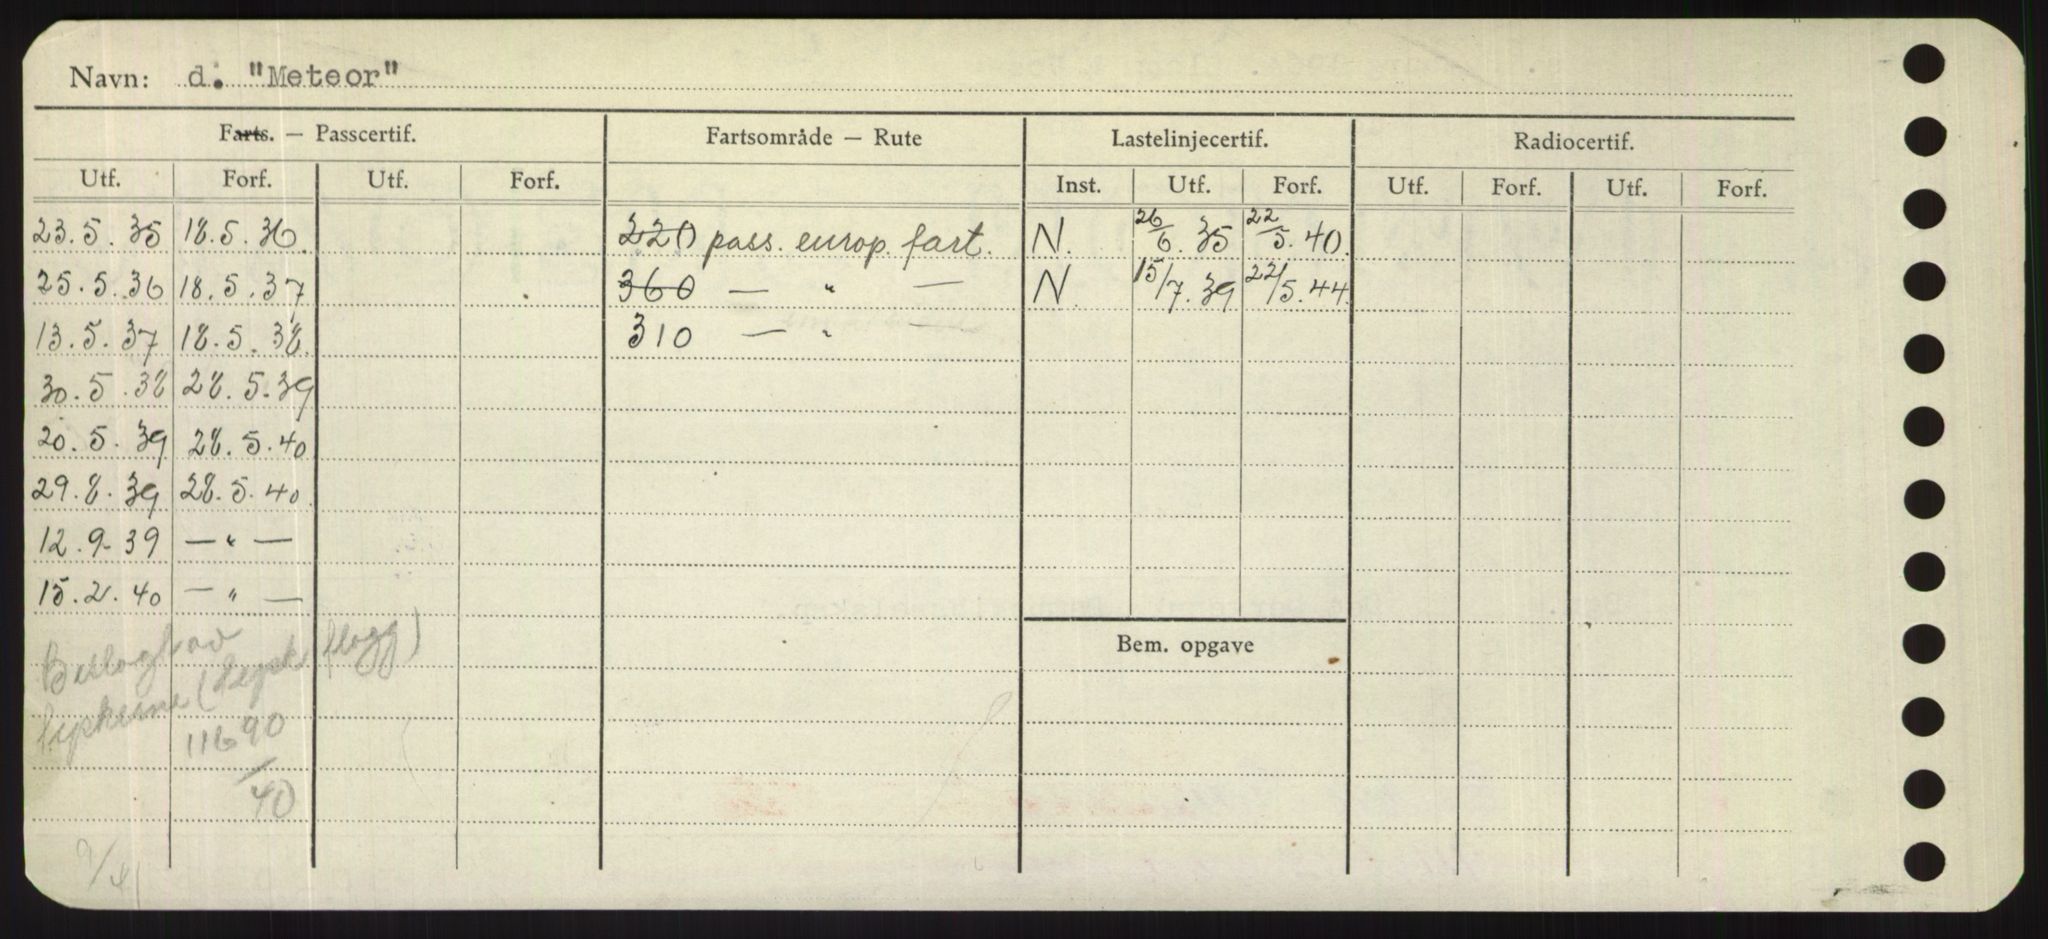 Navn: d. "Meteor"
Farts. — Passcertif. Fartsområde — Rute Lastelinjecertif. Radiocertif.
Utf. Forf. Utf. Forf. Inst. Utf. Forf. Utf. Forf. Utf. Forf.
23.5.35 18.5.36. 220 pass. europ. fart. N. 26/6.35 22/5.40.
25.5.36 18.5.37 360 — " — N. 15/7.39 22/5.44.
13.5.37 18.5.38. 310 — "
30.5.38 28.5.39
20.5.39 28.5.40
29.8.39 28.5.40.
12.9-39 — " —
15.2.40 — " —
Bem. opgave
Beslagt av
tyskerne (tysk flagg)
11690
/40